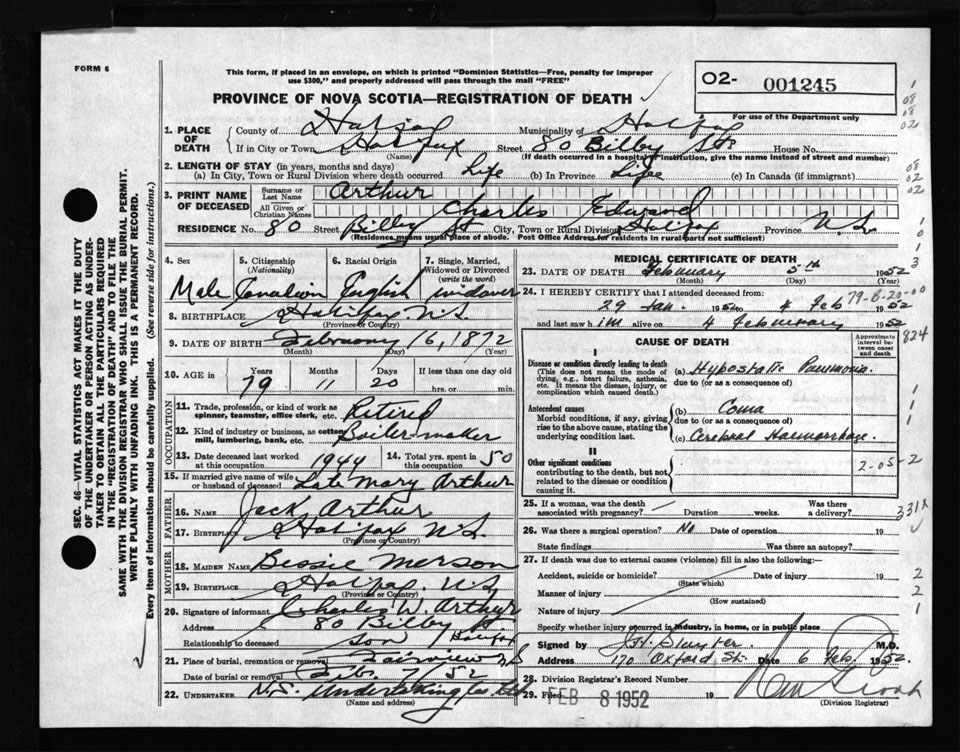 FORM 6
This form, if placed in an envelope, on which is printed "Dominion Statistics—Free, penalty for improper
use $300," and properly addressed will pass through the mail "FREE"
02- 001245
For use of the Department only
PROVINCE OF NOVA SCOTIA—REGISTRATION OF DEATH
1. PLACE OF DEATH
County of Halifax Municipality of Halifax
If in City or Town Halifax Street 80 Bilby St. House No.
(Name) (If death occurred in a hospital or institution, give the name instead of street and number)
2. LENGTH OF STAY (in years, months and days)
(a) In City, Town or Rural Division where death occurred Life (b) In Province Life (c) In Canada (if immigrant)
3. PRINT NAME OF DECEASED
Surname or Last Name Arthur
All Given or Christian Names Charles Edward
RESIDENCE No. 80 Street Bilby St City, Town or Rural Division Halifax Province N.S.
(Residence means usual place of abode. Post Office Address for residents in rural parts not sufficient)
4. Sex
Male
5. Citizenship (Nationality)
Canadian
6. Racial Origin
English
7. Single, Married, Widowed or Divorced (write the word)
widower
8. BIRTHPLACE Halifax N.S.
(Province or Country)
9. DATE OF BIRTH February 16, 1872
(Month) (Day) (Year)
10. AGE in Years 79 Months 11 Days 20 If less than one day old
hrs. or min.
OCCUPATION
11. Trade, profession, or kind of work as
spinner, teamster, office clerk, etc. Retired
12. Kind of industry or business, as cotton
mill, lumbering, bank, etc. Boilermaker
13. Date deceased last worked
at this occupation 1944
14. Total yrs. spent in
this occupation 50
15. If married give name of wife
or husband of deceased Late Mary Arthur
FATHER
16. NAME Jack Arthur
17. BIRTHPLACE Halifax N.S.
(Province or Country)
MOTHER
18. MAIDEN NAME Bessie Merson
19. BIRTHPLACE Halifax N.S.
(Province or Country)
20. Signature of informant Charles W. Arthur
Address 80 Bilby St. Halifax
Relationship to deceased son
21. Place of burial, cremation or removal Fairview N.S
Date of burial or removal Feb. 7 52
22. UNDERTAKER N.S. Undertaking Co. Ltd
(Name and address)
MEDICAL CERTIFICATE OF DEATH
23. DATE OF DEATH February 5th 1952
(Month) (Day)
24. I HEREBY CERTIFY that I attended deceased from
29 Jan. 1952 to 4 Feb 1952
and last saw him alive on 4 February 1952
CAUSE OF DEATH
Approximate interval between onset and death
I
Disease or condition directly leading to death
(This does not mean the mode of
dying, e.g., heart failure, asthenia,
etc. It means the disease, injury, or
complication which caused death.)
(a) Hypostatic Pneumonia.
due to (or as a consequence of)
Antecedent causes
Morbid conditions, if any, giving
rise to the above cause, stating the
underlying condition last.
(b) Coma
due to (or as a consequence of)
(c) Cerebral Haemorrhage.
II
Other significant conditions
contributing to the death, but not
related to the disease or condition
causing it.
25. If a woman, was the death
associated with pregnancy? Duration weeks. Was there
a delivery?
26. Was there a surgical operation? No Date of operation 19
State findings Was there an autopsy?
27. If death was due to external causes (violence) fill in also the following:
Accident, suicide or homicide? Date of injury 19
(State which)
Manner of injury
(How sustained)
Nature of injury
Specify whether injury occurred in industry, in home, or in public place
Signed by M.D.
Address 170 Oxford St. Date 6 Feb. 1952.
28. Division Registrar's Record Number
29. Filed FEB 8 1952 19
(Division Registrar)
79-B-20-00
824
2-05-2
331X
SEC. 46—VITAL STATISTICS ACT MAKES IT THE DUTY
OF THE UNDERTAKER OR PERSON ACTING AS UNDER-
TAKER TO OBTAIN ALL THE PARTICULARS REQUIRED
IN THE "REGISTRATION OF DEATH" AND TO FILE THE
SAME WITH THE DIVISION REGISTRAR WHO SHALL ISSUE THE BURIAL PERMIT.
WRITE PLAINLY WITH UNFADING INK. THIS IS A PERMANENT RECORD.
Every item of information should be carefully supplied. (See reverse side for instructions.)